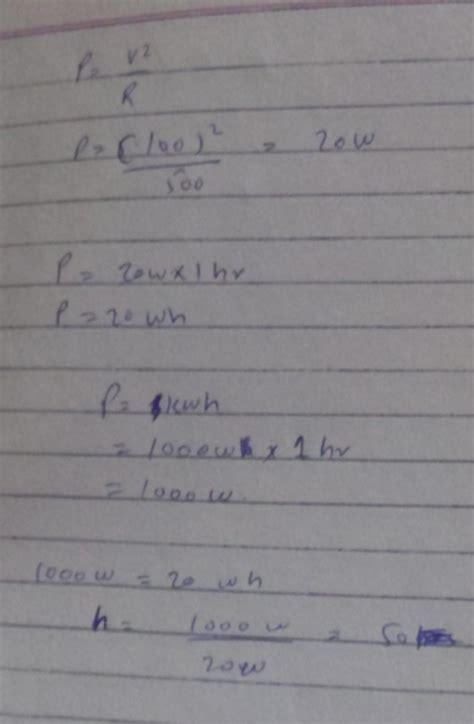 P = V²/R
P = (100)²/500 = 20w
P = 20w x 1 hr
P = 20 wh
P = 1kwh
= 1000w x 1 hr
= 1000 w
1000 w = 20 wh
h = 1000 w/20w = 50